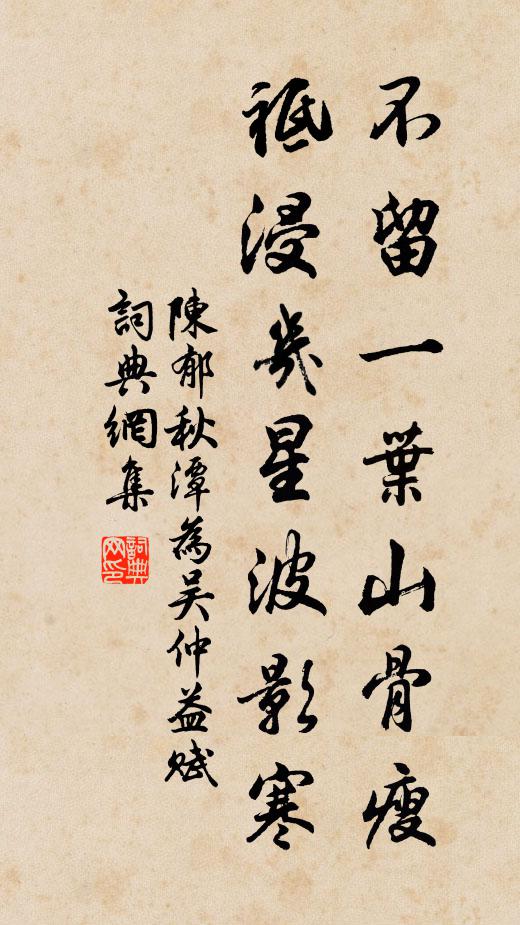 不留一葉山骨瘦
祗浸幾星波影寒
陳郁秋潭為吳仲益賦
詞典網集
詞典网印